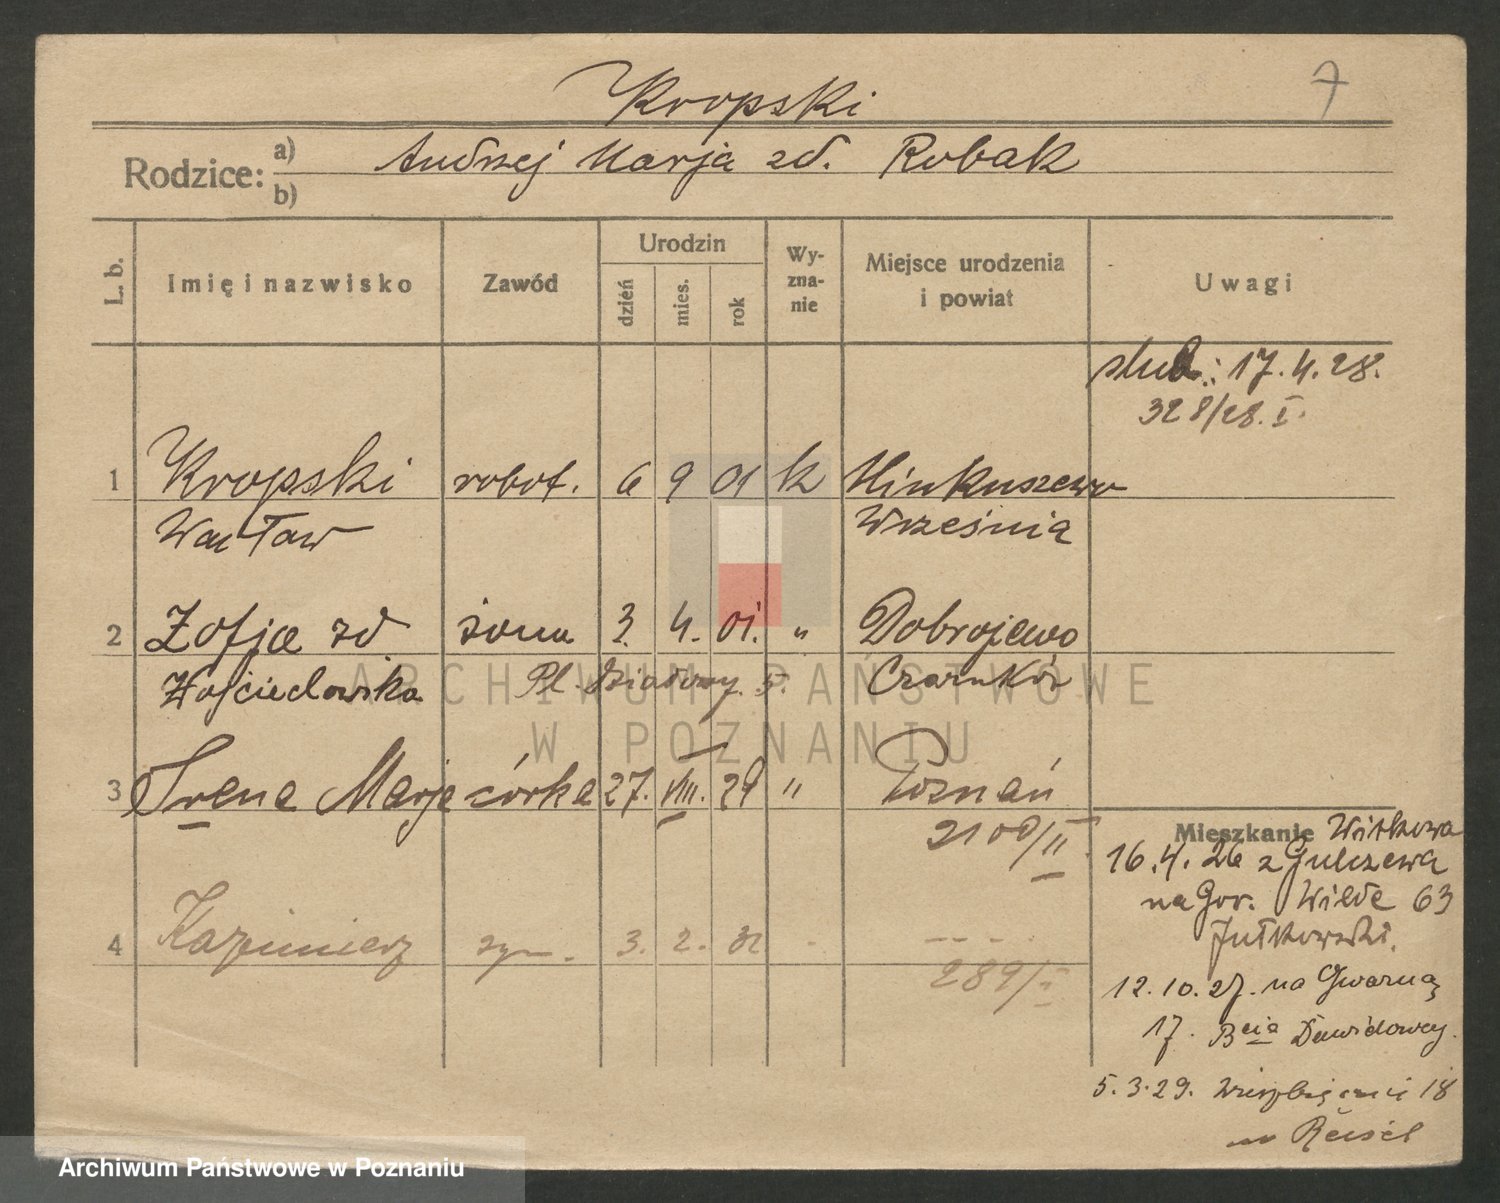 Kropski
7
Rodzice: a) Andrzej Marja zd. Robak
b)
L. b.
Imię i nazwisko
Zawód
Urodzin
dzień
mies.
rok
Wy-
zna-
nie
Miejsce urodzenia
i powiat
Uwagi
slub.: 17.4.28.
328/28. I.
1 Kropski robot. 6 9 01 k
Wacław Września
2 Zofja zd żona 3. 4. 01. „ Dobrojewo
Wojciechowska Pl. Działowy 5. Czarnków
3 Irena Marja córka 27. VIII. 29 „ Poznań
2100/II
4 Kazimierz syn. 3. 2. 32 - - - -
289/II
Mieszkanie Witkowa
16.4.26 z Gulczewa
na Gór. Wilde 63
Jutkowski.
12.10.27. na Gwarną
17. Bcia Dawidowcy.
5.3.29. Wierzbięcice 18
ARCHIWUM PAŃSTWOWE
W POZNANIU
Archiwum Państwowe w Poznaniu